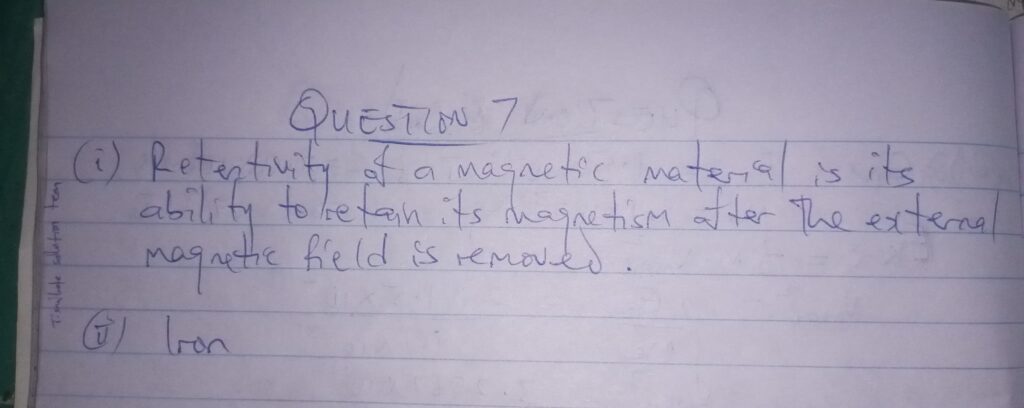 QUESTION 7
(i) Retentivity of a magnetic material is its
ability to retain its magnetism after the external
magnetic field is removed.
(ii) Iron